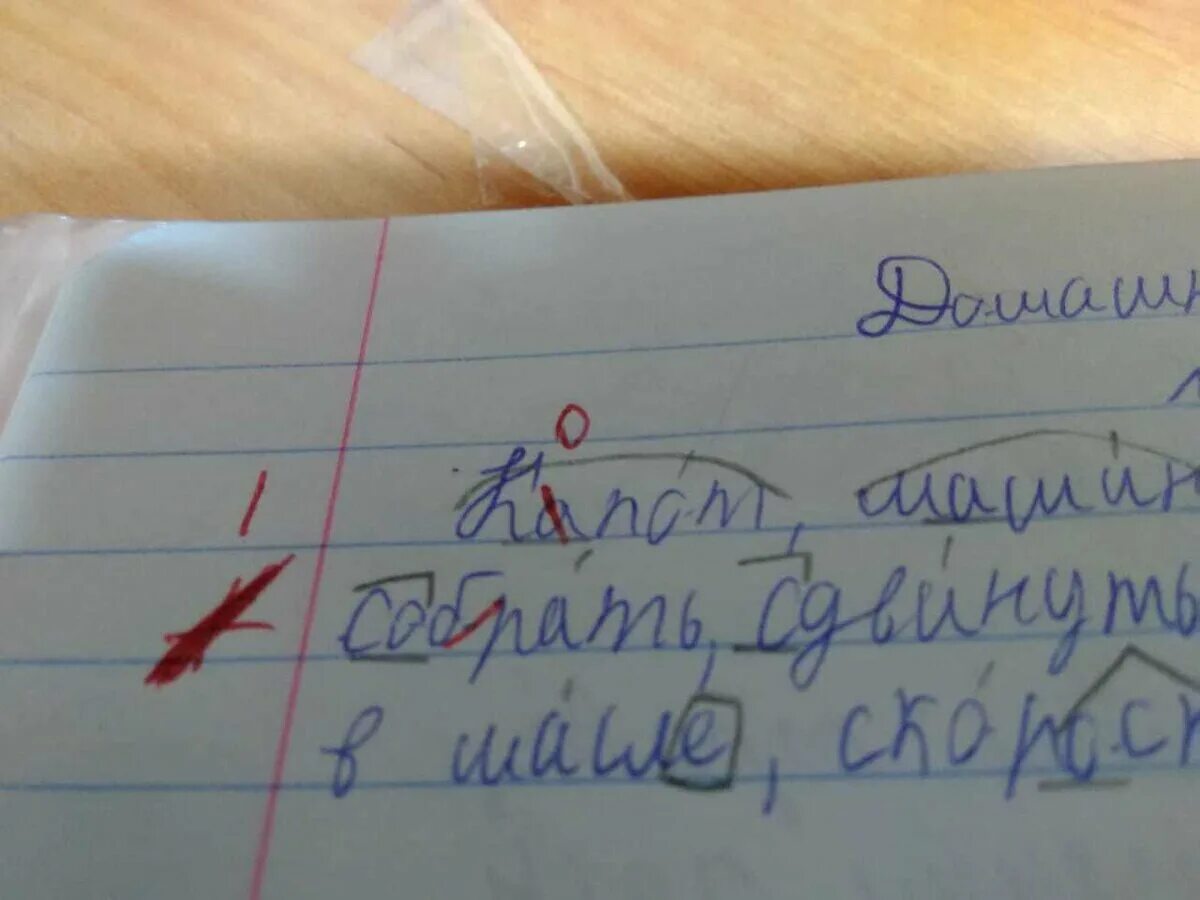 Домашн
О
| Капот, машин
собрать, сдвинуть
в масле, скорост